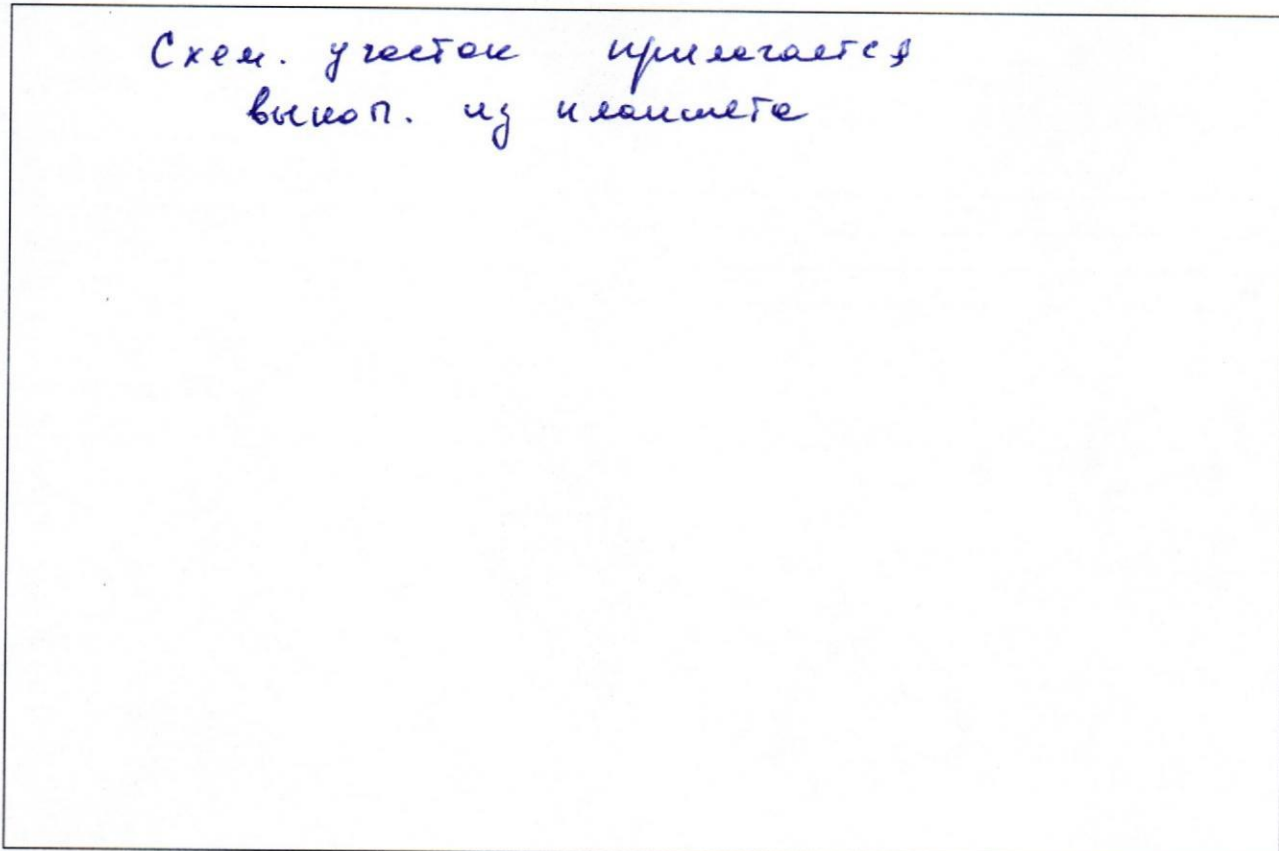 Схем. участок прилагается
выкоп. из планшета